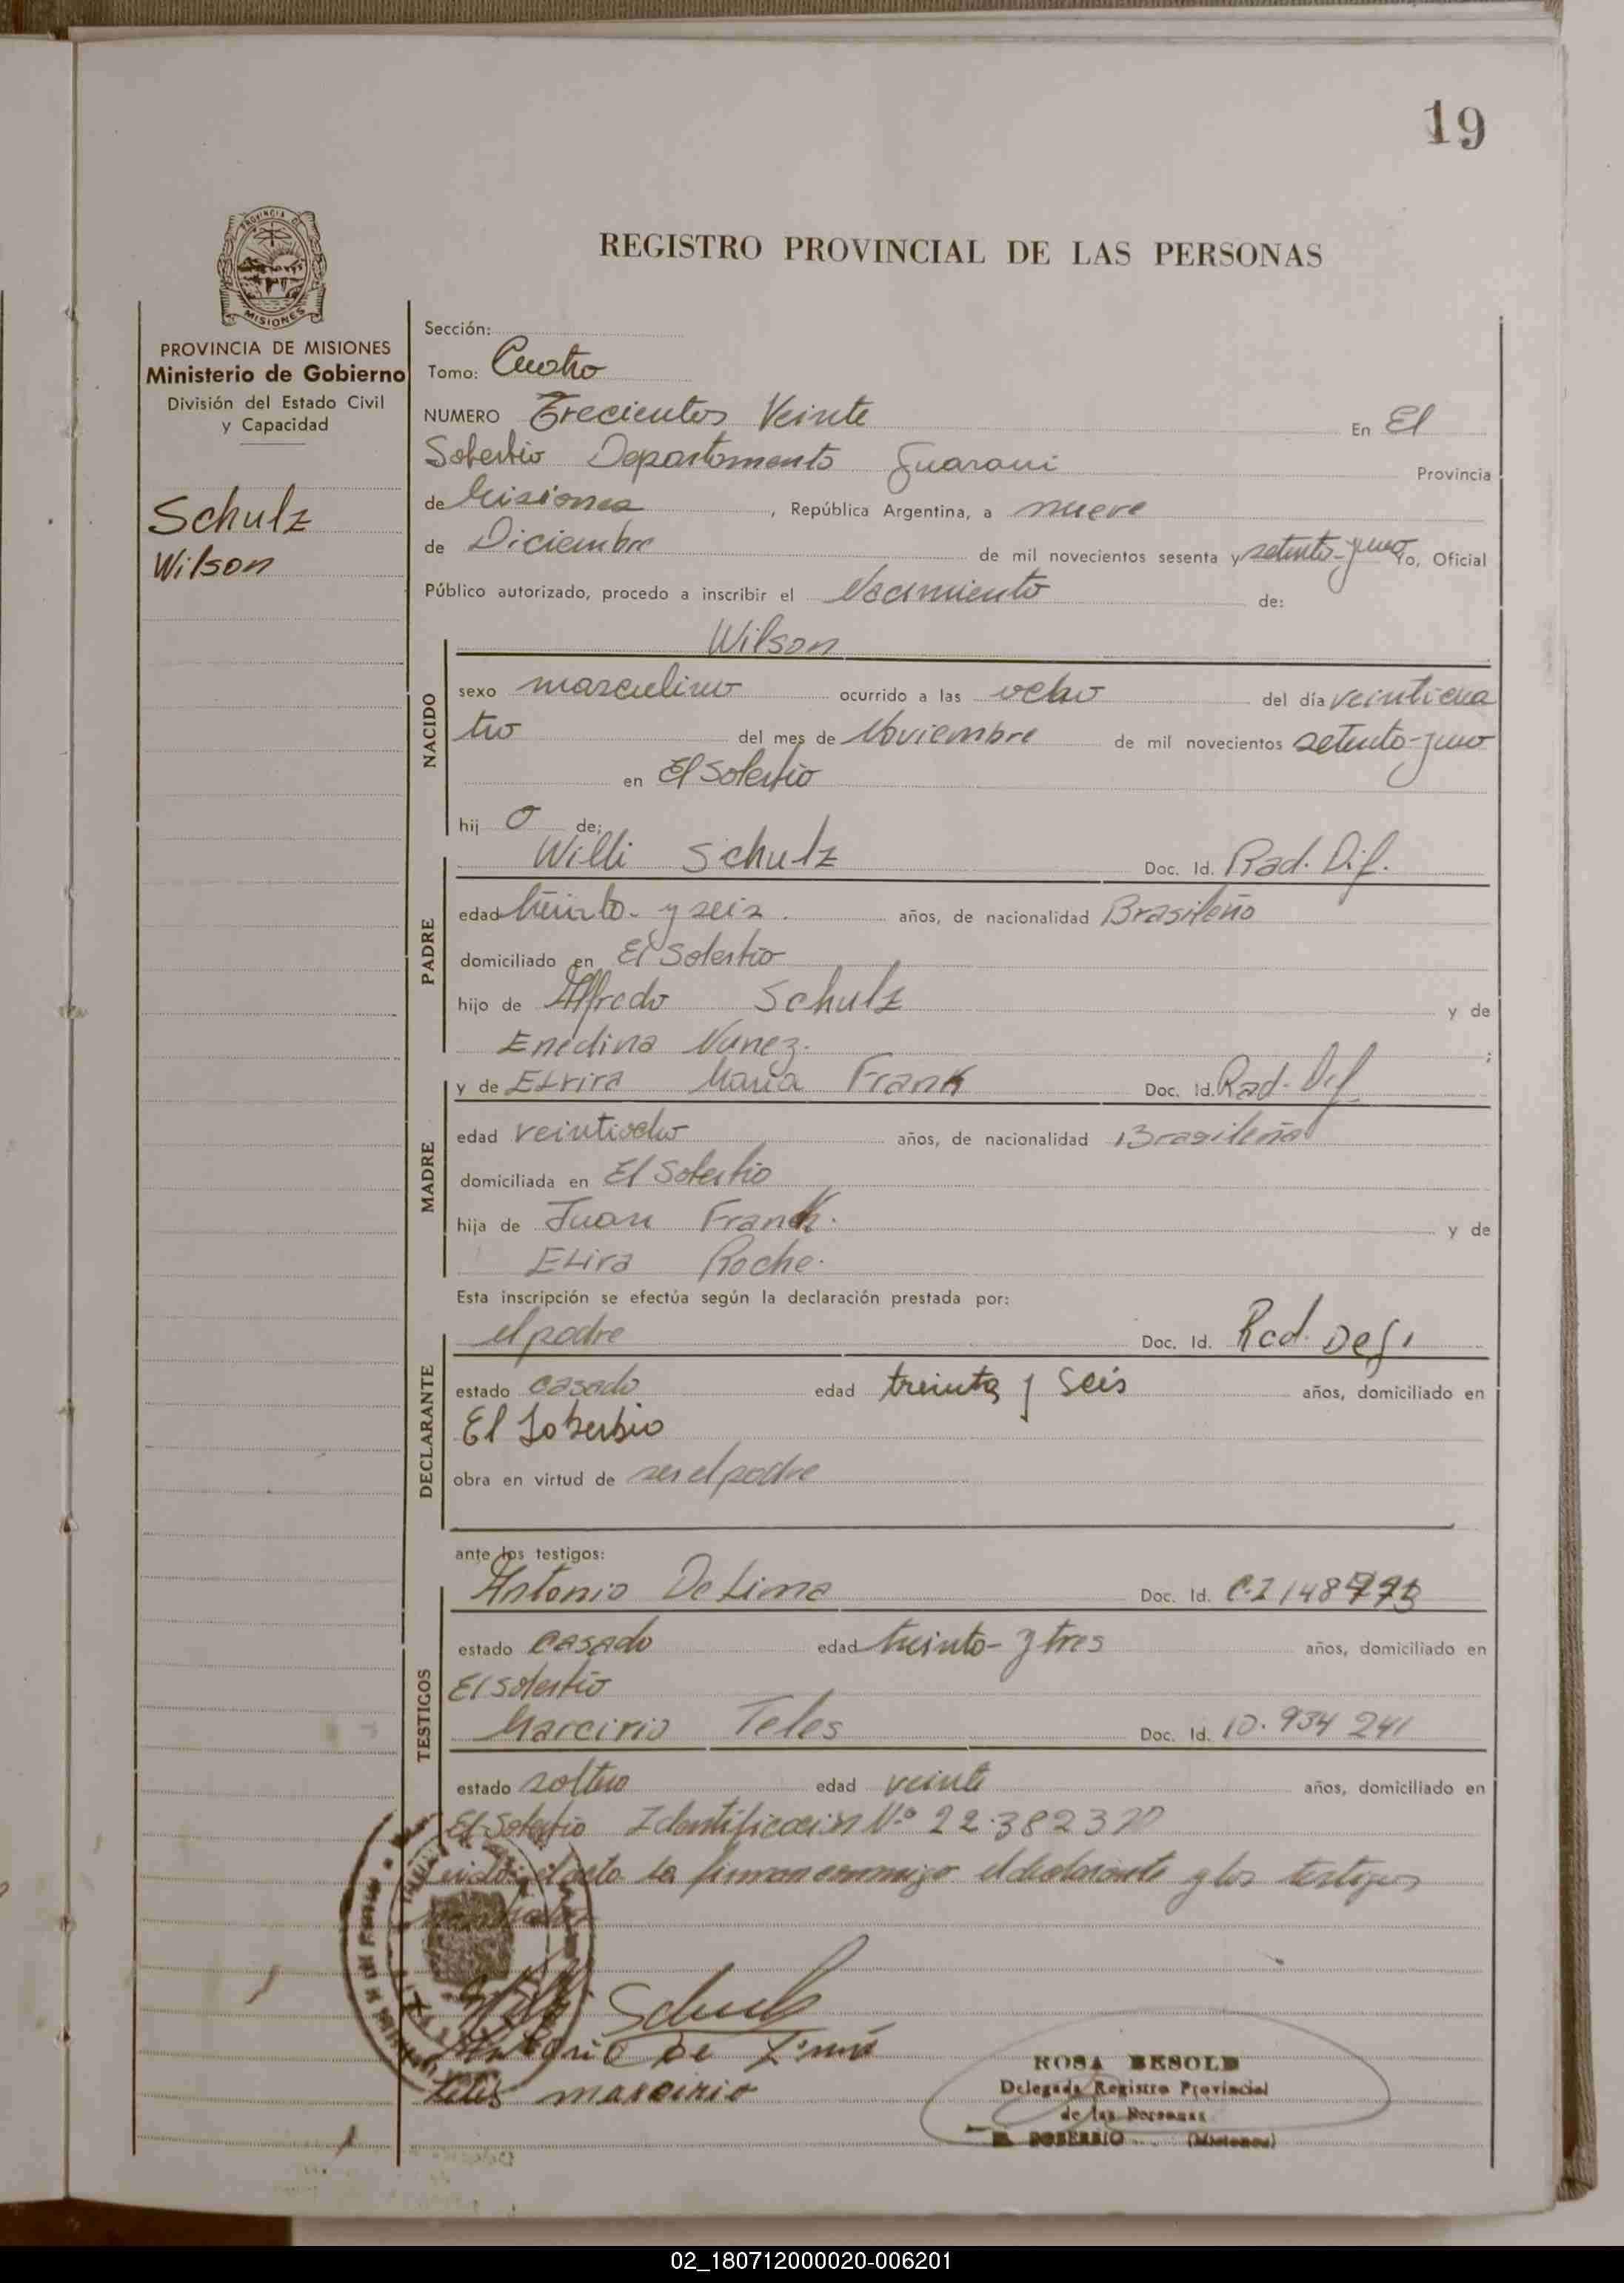 19
REGISTRO PROVINCIAL DE LAS PERSONAS
PROVINCIA DE
MISIONES
PROVINCIA DE MISIONES
Ministerio de Gobierno
División del Estado Civil
y Capacidad
Schulz
Wilson
Sección:
Tomo: Cuatro
NUMERO Trecientos Veinte En El
Soberbio Departamento Guarani Provincia
de Misiones, República Argentina, a nueve
de Diciembre de mil novecientos sesenta y setenta y uno Yo, Oficial
Público autorizado, procedo a inscribir el Nacimiento de:
Wilson
NACIDO
sexo masculino ocurrido a las ocho del día veinticua
tro del mes de Noviembre de mil novecientos setenta y uno
en El Soberbio
hij o de:
PADRE
Willi Schulz Doc. Id. Rad. Dif.
edad treinta y seis. años, de nacionalidad Brasileño
domiciliado en El Soberbio
hijo de Alfredo Schulz y de
Enedina Nunez. ;
MADRE
y de Elvira Maria Frank Doc. Id. Rad. Dif
edad veintiocho años, de nacionalidad Brasileña
domiciliada en El Soberbio
hija de Juan Frank. y de
Elira Roche.
Esta inscripción se efectúa según la declaración prestada por:
DECLARANTE
el padre Doc. Id. Rad. Def.
estado casado edad treinta y seis años, domiciliado en
El Soberbio
obra en virtud de ser el padre
ante los testigos:
TESTIGOS
Antonio De Lima Doc. Id. C.I 148
estado casado edad treinta y tres años, domiciliado en
El Soberbio
Marcirio Teles Doc. Id. 10.934 241
estado soltero edad veinte años, domiciliado en
El Soberbio Identificación Nº 22.382320
el acta la firman conmigo el declarante y los testigos
Willi Schulz
Antonio De Lima
Teles marcirio
ROSA BESOLD
Delegada Registro Provincial
de las Personas
EL SOBERBIO (Misiones)
02_180712000020-006201